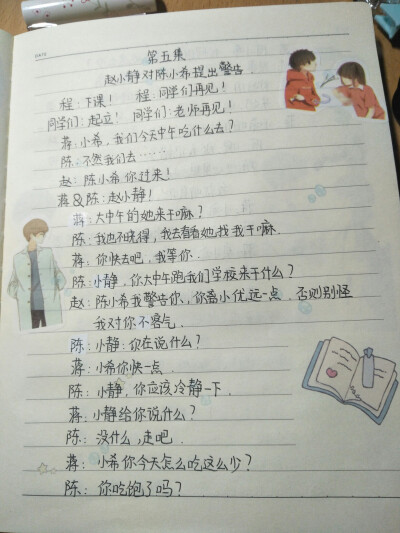 DATE
第五集
赵小静对陈小希提出警告.
程:下课! 程:同学们再见!
同学们:起立! 同学们:老师再见!
蒋:小希,我们今天中午吃什么去?
陈:不然我们去……
赵:陈小希你过来!
蒋&陈:赵小静!
蒋:大中午的她来干嘛?
陈:我也不晓得,我去看看她找我干嘛.
蒋:你快去吧,我等你.
陈:小静,你大中午跑我们学校来干什么?
赵:陈小希我警告你、你离小优远一点.否则别怪
我对你不客气.
陈:小静:你在说什么?
蒋:小希你快一点.
陈:小静,你应该冷静一下.
蒋:小静给你说什么?
陈:没什么,走吧.
蒋:小希你今天怎么吃这么少?
陈:你吃饱了吗?